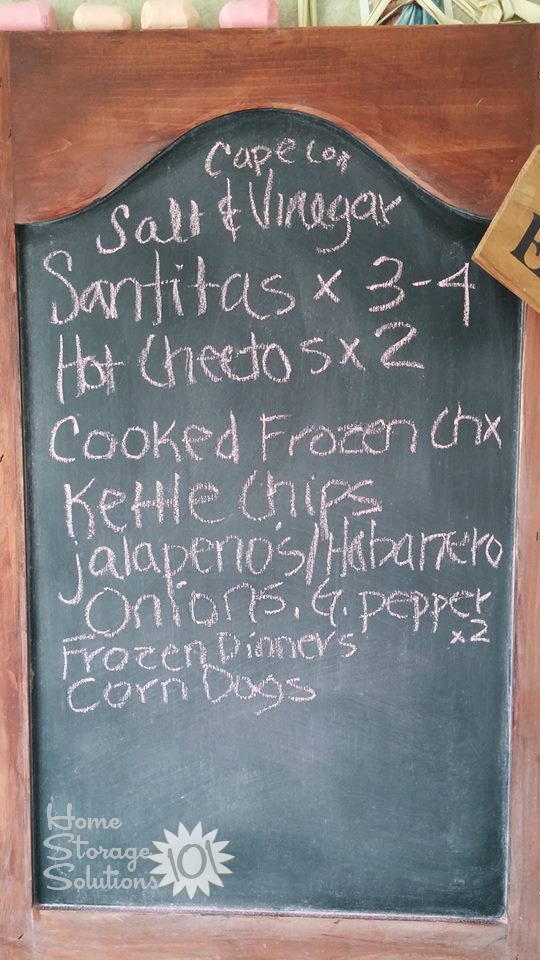 Cape Cod
Salt & Vinegar
Santitas x 3-4
Hot Cheetos x 2
Cooked Frozen Chx
Kettle Chips
jalapenos/Habanero
Onions, G. pepper
x2
Frozen Dinners
Corn Dogs
Home
Storage
Solutions 101